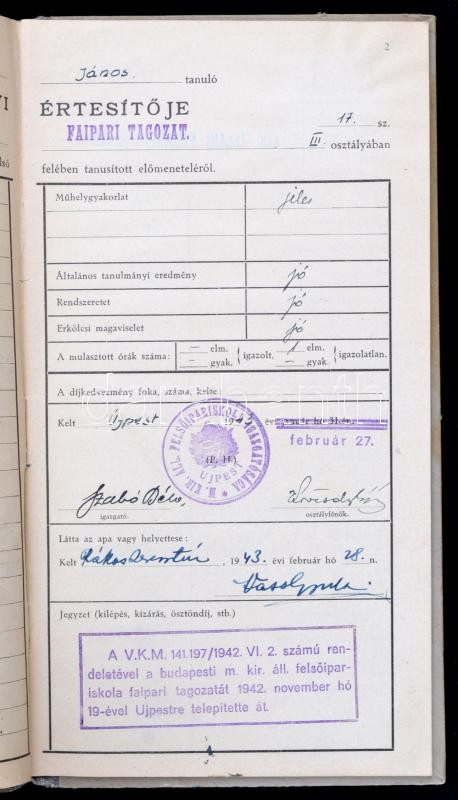 2
János. tanuló
ÉRTESÍTŐJE
FAIPARI TAGOZAT. 17. sz.
III. osztályában
felében tanusított előmeneteléről.
Műhelygyakorlat jeles
Általános tanulmányi eredmény jó
Rendszeretet jó
Erkölcsi magaviselet jó
A mulasztott órák száma: — elm. — gyak. igazolt, 1 elm. — gyak. igazolatlan.
A díjkedvezmény foka, száma, kelte:
Kelt Újpest 1943 évi
február 27.
(P. H.)
M. KIR. ÁLL. FELSŐIPARISKOLA IGAZGATÓSÁGA
UJPEST
Szabó Béla
igazgató. osztályfőnök.
Látta az apa vagy helyettese:
Kelt Rákoskeresztúr, 1943. évi február hó 28. n.
Vass Gyula
Jegyzet (kilépés, kizárás, ösztöndíj, stb.)
A V.K.M. 141.197/1942. VI. 2. számú ren-
deletével a budapesti m. kir. áll. felsőipar-
iskola faipari tagozatát 1942. november hó
19-ével Ujpestre telepitette át.